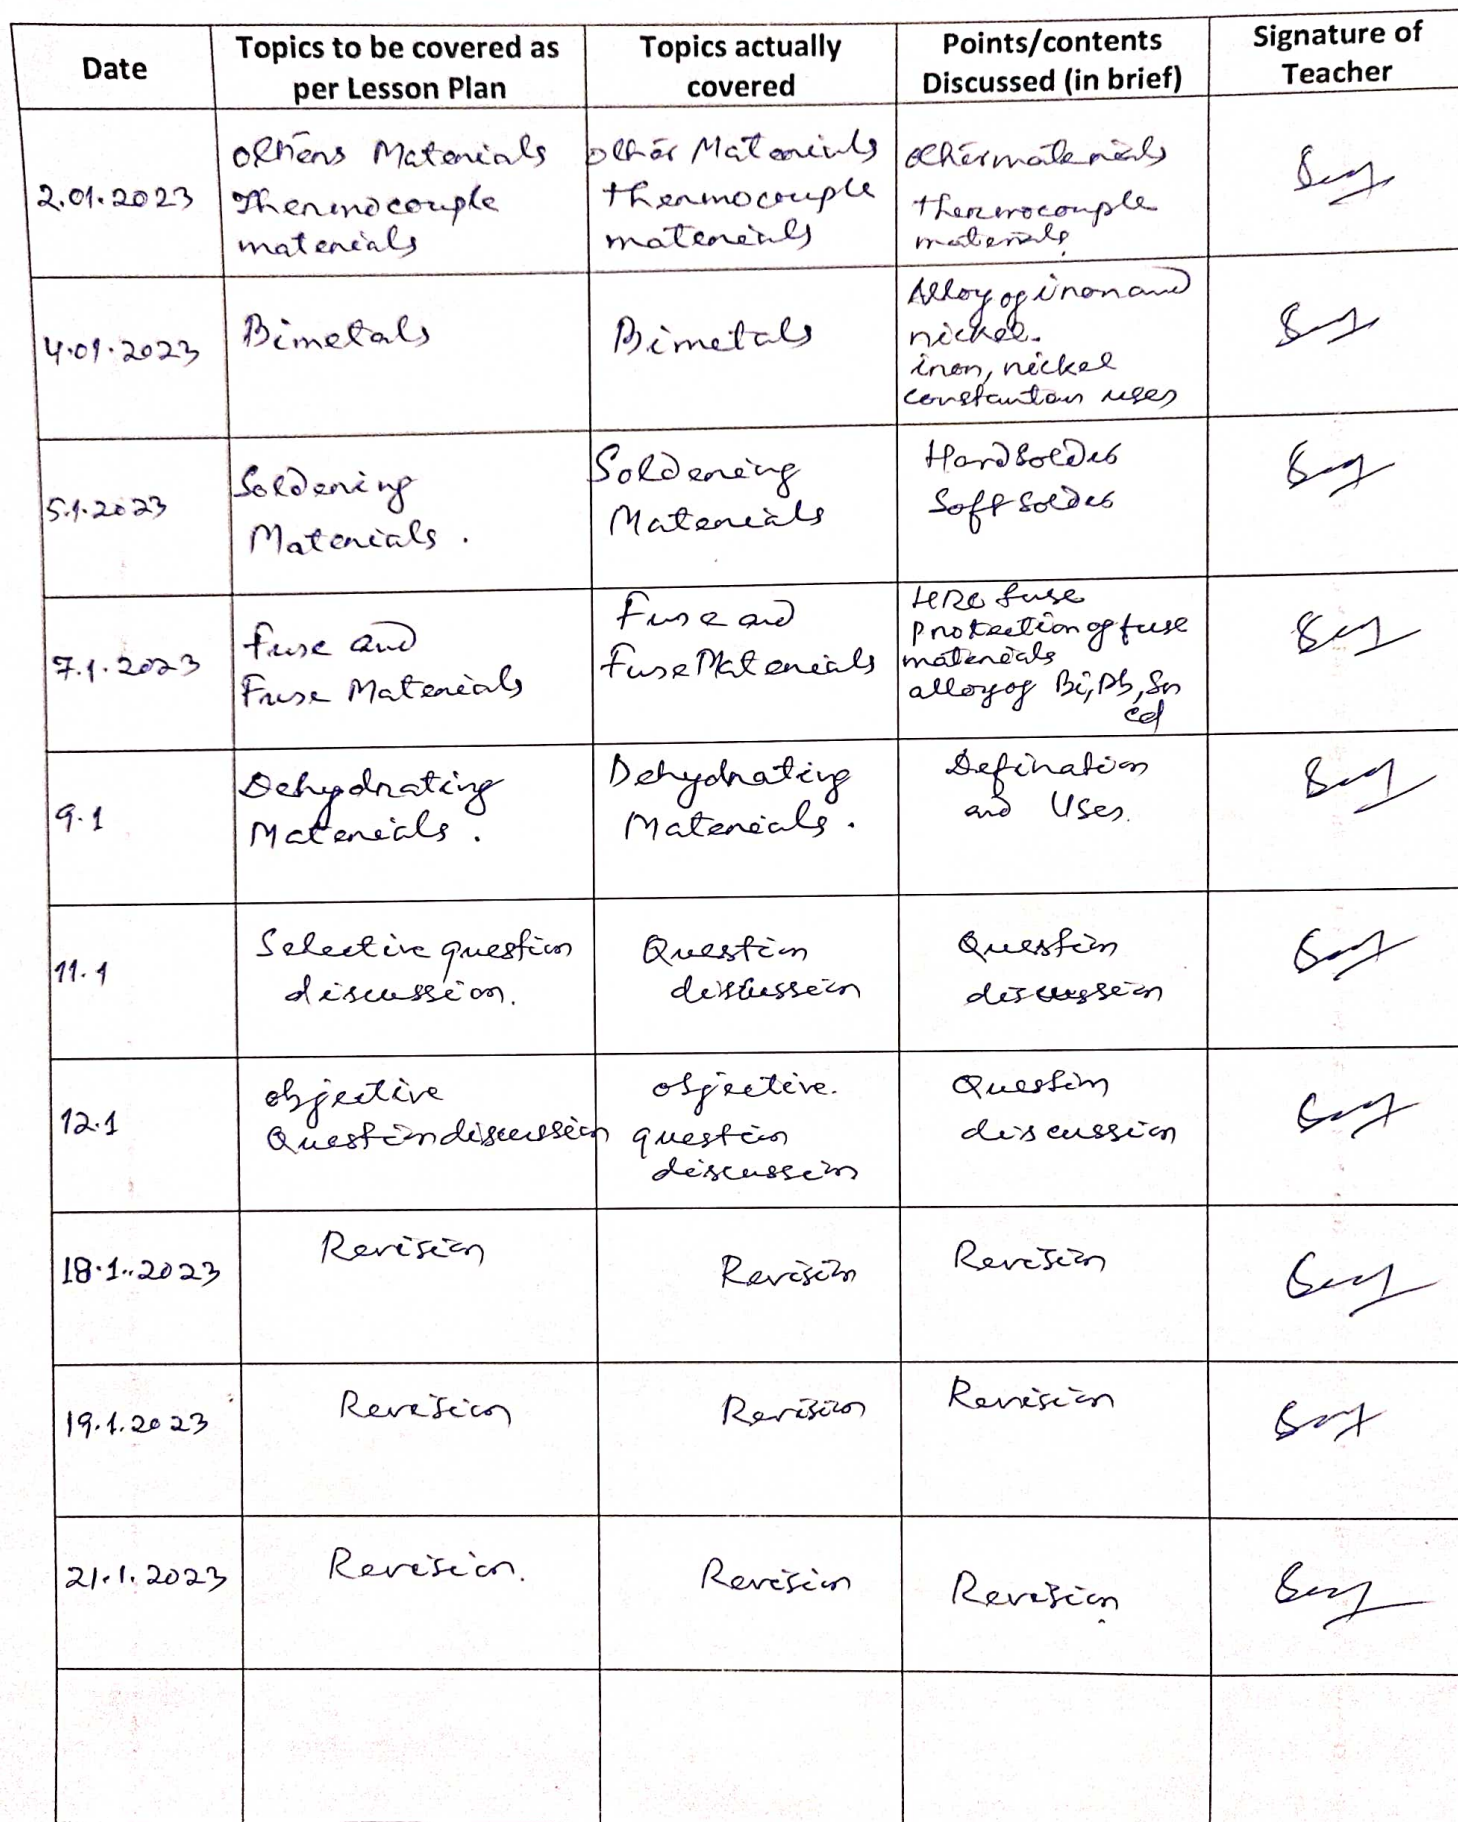 Date
Topics to be covered as
per Lesson Plan
Topics actually
covered
Points/contents
Discussed (in brief)
Signature of
Teacher
2.01.2023
others Materials
Thermocouple
materials
other Materials
thermocouple
materials
other materials
thermocouple
materials
4.01.2023
Bimetals
Bimetals
Alloy of iron and
nickel.
iron, nickel
constantan uses
5.1.2023
Soldering
Materials.
Soldering
Materials
Hard Solder
Soft Solder
7.1.2023
fuse and
Fuse Materials
Fuse and
Fuse Materials
HRC fuse
Protection of fuse
materials
alloy of Bi, Pb, Sn
cd
9.1
Dehydrating
Materials.
Dehydrating
Materials.
Defination
and Uses.
11.1
Selective question
discussion.
Question
discussion
Question
discussion
12.1
objective
Question discussion
objective.
question
discussion
Question
discussion
18.1.2023
Revision
Revision
Revision
19.1.2023
Revision
Revision
Revision
21.1.2023
Revision.
Revision
Revision